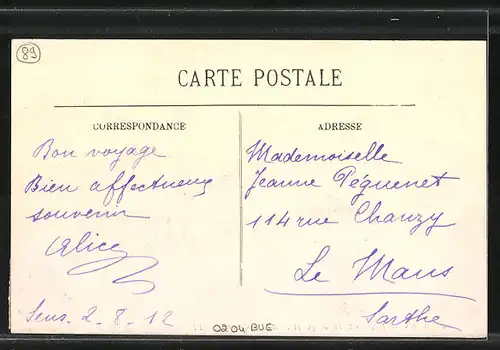 89
CARTE POSTALE
CORRESPONDANCE
Bon voyage
Bien affectueux
souvenir
Alice
Sens. 2-8-12
ADRESSE
Mademoiselle
Jeanne Péguenet
114 rue Chanzy
Le Mans
Sarthe
0204 BUE